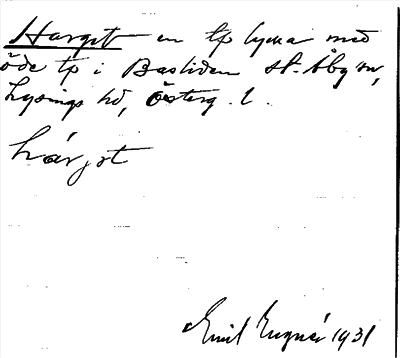 Harget en tp lycka med
öde tp i Basliden St. Åby sn,
Lysings hd, Österg. l.
hárjet
Emil Engnér 1931